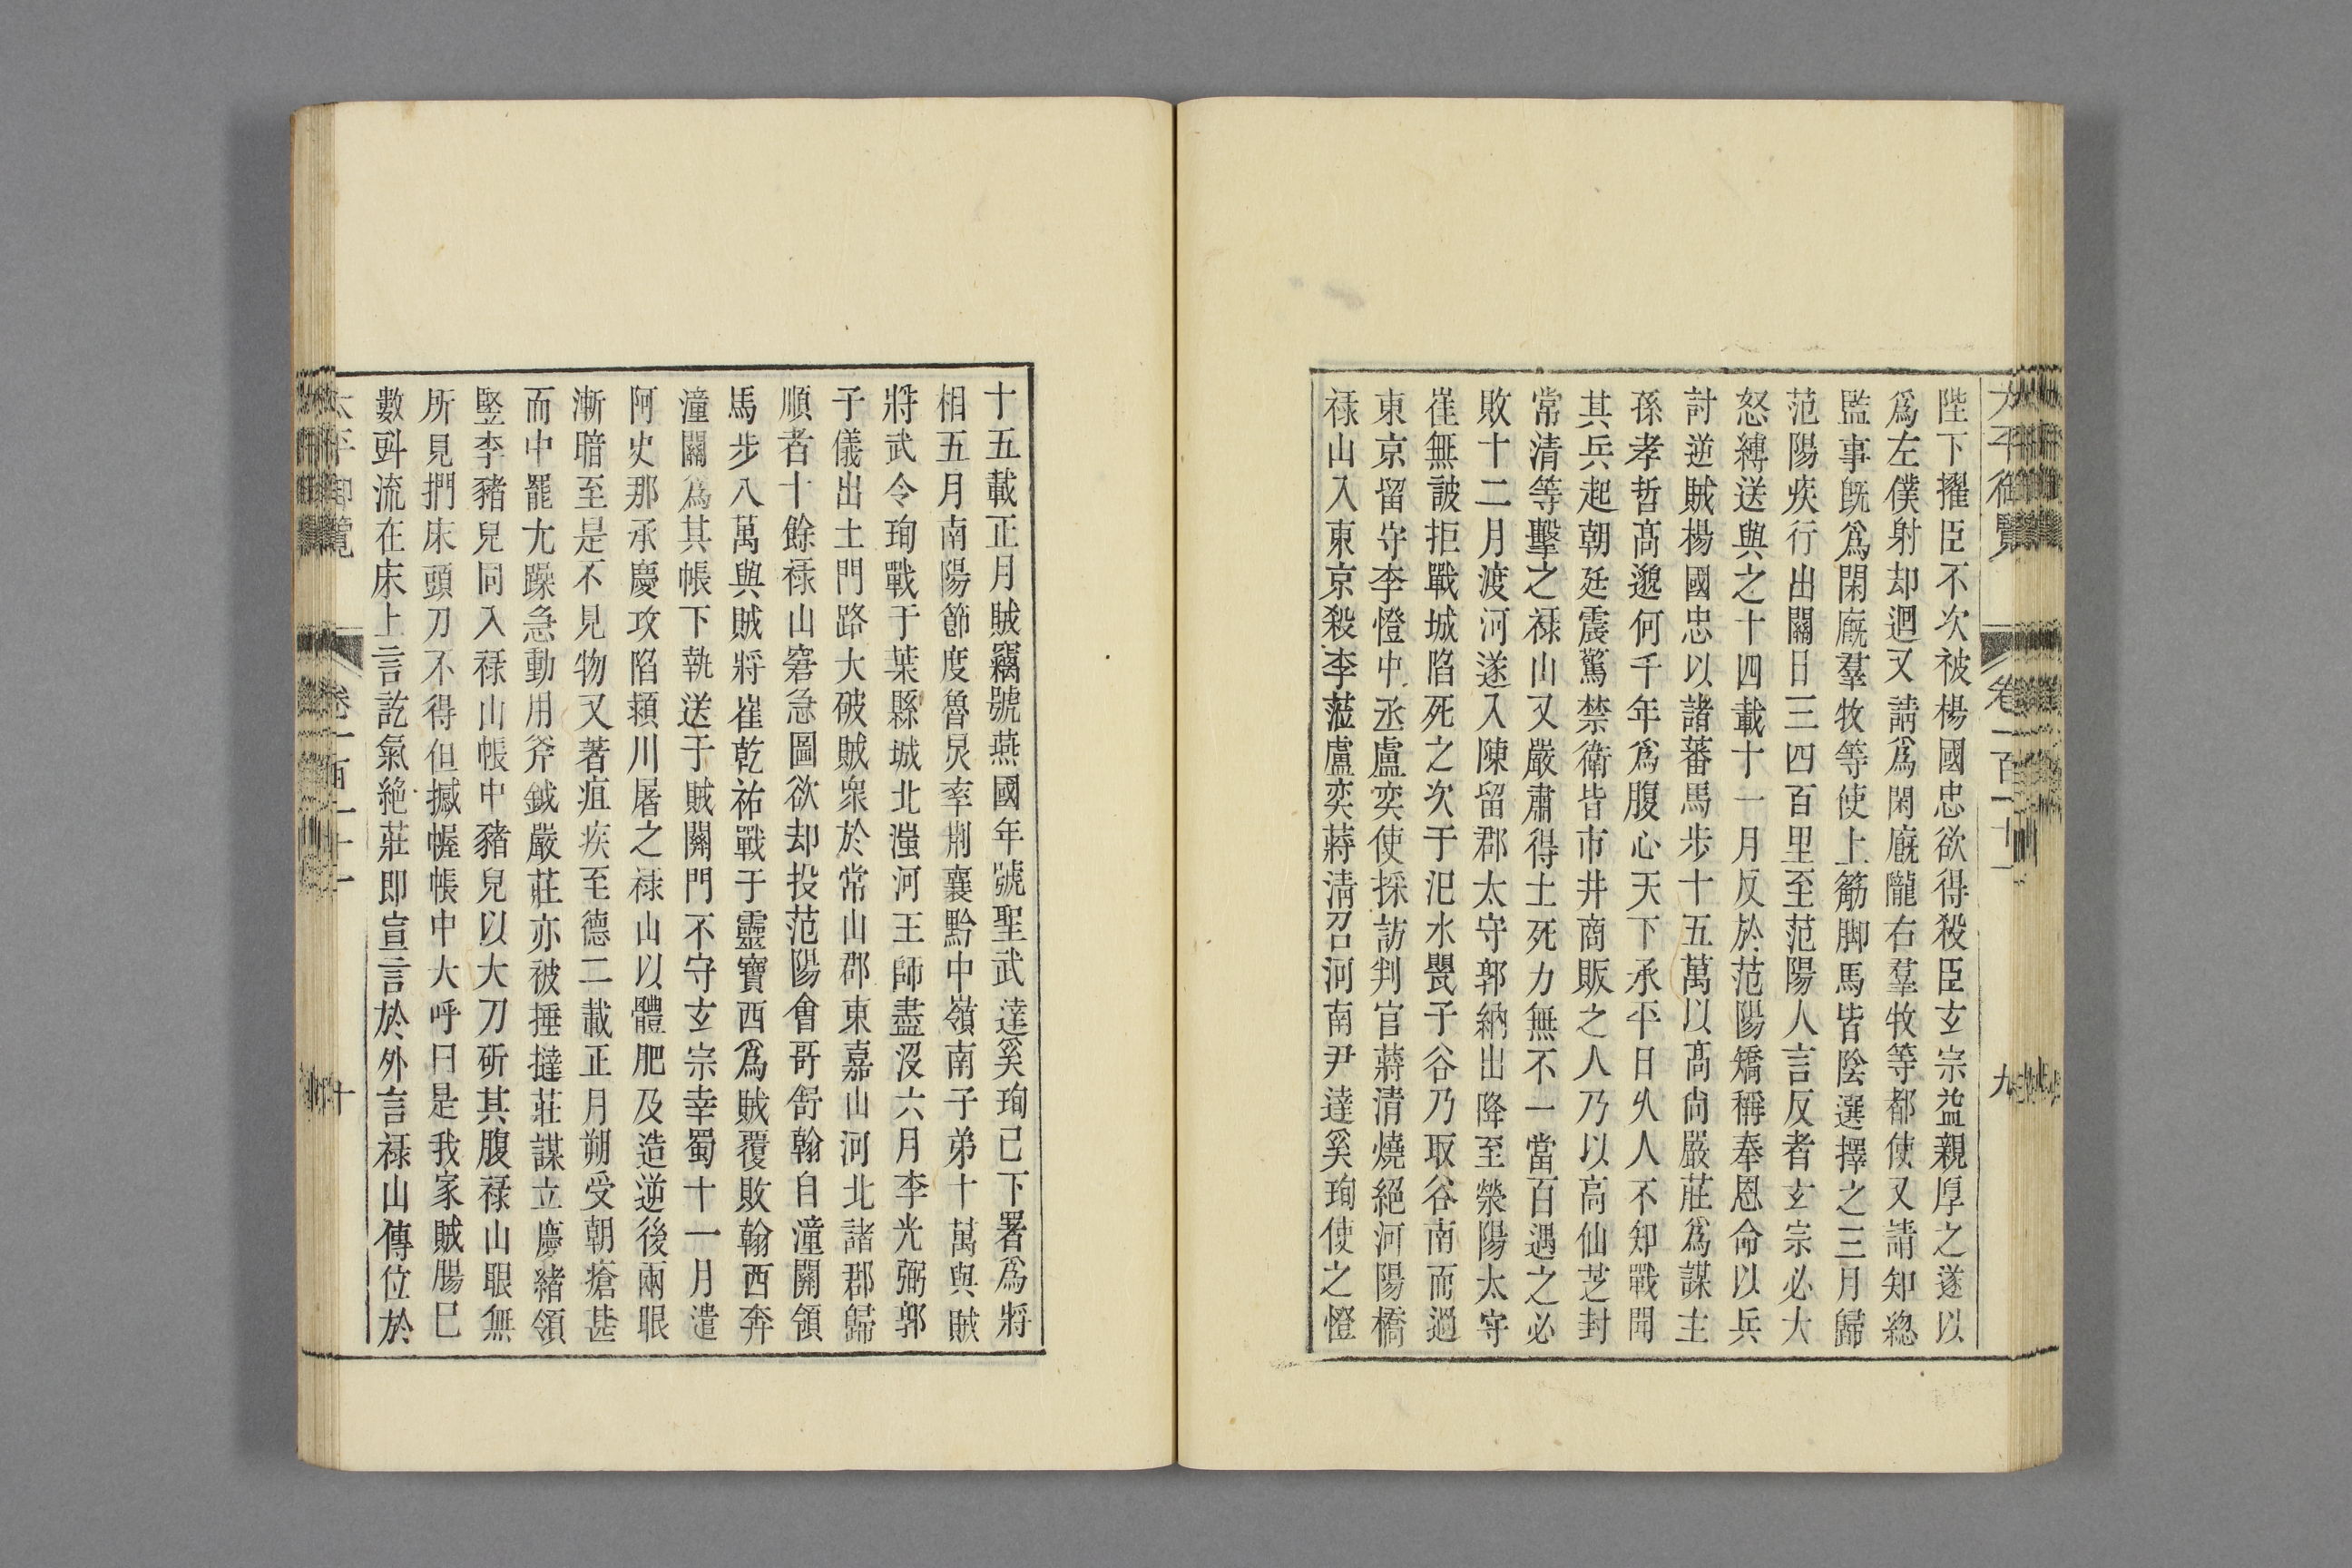 陛下擢臣不次被楊國忠欲得殺臣玄宗益親厚之遂以
爲左僕射却迴又請爲閑廐隴右羣牧等都使又請知緫
監事旣爲閑廐羣牧等使上筋脚馬皆陰選擇之三月歸
范陽疾行出關日三四百里至范陽人言反者玄宗必大
怒縛送與之十四載十一月反於范陽矯稱奉恩命以兵
討逆賊楊國忠以諸蕃馬步十五萬以髙尚嚴莊爲謀主
孫孝哲髙邈何千年爲腹心天下承平日乆人不知戰聞
其兵起朝廷震驚禁衛皆市井商販之人乃以高仙芝封
常清等擊之禄山又嚴肅得士死力無不一當百遇之必
敗十二月渡河遂入陳留郡太守郭納出降至滎陽太守
崔無詖拒戰城陷死之次于汜水甖子谷乃取谷南而過
東京留守李憕中丞盧奕使採訪判官蔣清燒絕河陽橋
禄山入東京殺李憕盧奕蔣清召河南尹達奚珣使之憕
十五載正月賊竊號燕國年號聖武達奚珣已下署爲將
相五月南陽節度魯炅率荆襄黔中嶺南子弟十萬與賊
將武令珣戰于葉縣城北滍河王師盡沒六月李光弼郭
子儀出土門路大破賊衆於常山郡東嘉山河北諸郡歸
順者十餘禄山窘急圖欲却投范陽會哥舒翰自潼關領
馬步八萬與賊將崔乾祐戰于靈寶西爲賊覆敗翰西奔
潼關爲其帳下執送于賊關門不守玄宗幸蜀十一月遣
阿史那承慶攻陷潁川屠之禄山以體肥及造逆後兩眼
漸暗至是不見物又著疽疾至德二載正月朔受朝瘡甚
而中罷尤躁急動用斧鉞嚴莊亦被捶撻莊謀立慶緒領
竪李豬兒同入禄山帳中豬兒以大刀斫其腹禄山眼無
所見捫床頭刀不得但撼幄帳中大呼曰是我家賊腸已
數㪷流在床上言訖氣絶莊即宣言於外言禄山傳位於